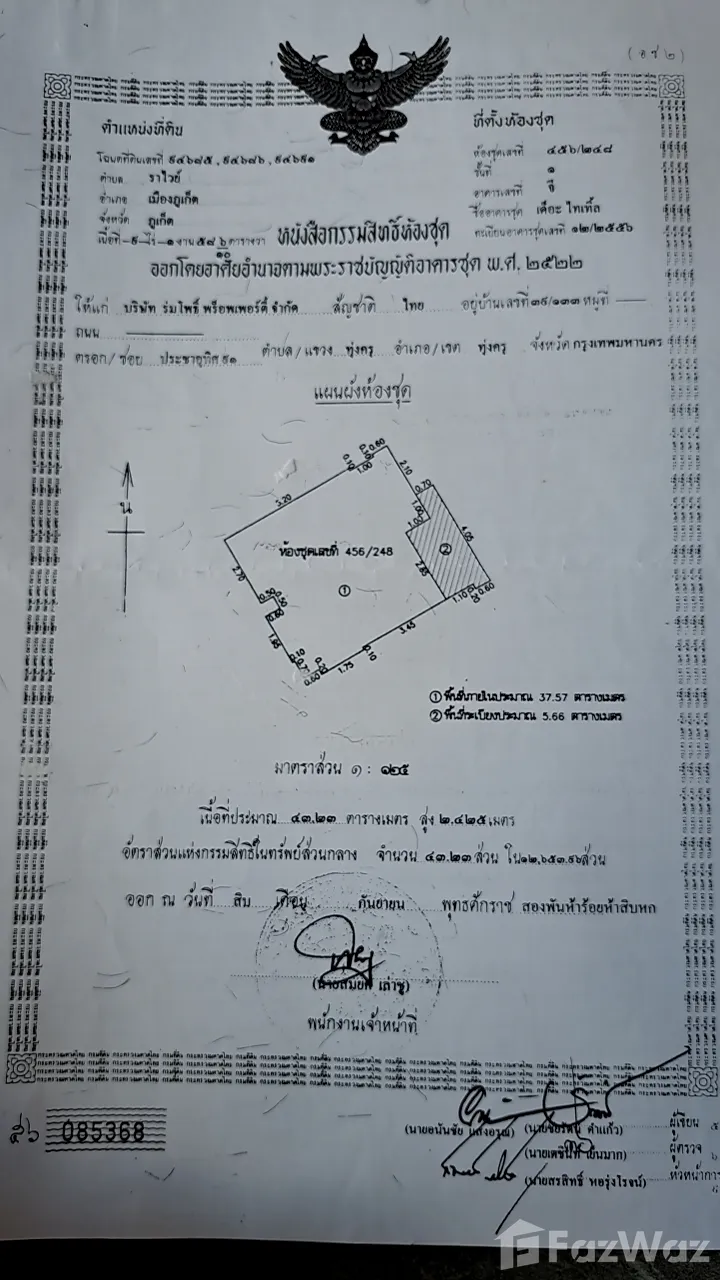 (อ.ช.๒)
ตำแหน่งที่ดิน
ที่ตั้งห้องชุด
โฉนดที่ดินเลขที่ ๙๔๖๘๕, ๙๔๖๘๖, ๙๔๖๙๑
ห้องชุดเลขที่ ๔๕๖/๒๔๘
ตำบล ราไวย์
ชั้นที่ ๑
อำเภอ เมืองภูเก็ต
อาคารเลขที่ จี
จังหวัด ภูเก็ต
ชื่ออาคารชุด เดอะ ไทเทิ้ล
เนื้อที่ -๙- ไร่ -๑- งาน ๕๘ ตารางวา
ทะเบียนอาคารชุดเลขที่ ๑๒/๒๕๕๖
หนังสือกรรมสิทธิ์ห้องชุด
ออกโดยอาศัยอำนาจตามพระราชบัญญัติอาคารชุด พ.ศ. ๒๕๒๒
ให้แก่ บริษัท ร่มโพธิ์ พร็อพเพอร์ตี้ จำกัด สัญชาติ ไทย อยู่บ้านเลขที่ ๓๙/๑๓๓ หมู่ที่
ถนน
ตรอก/ซอย ประชาอุทิศ ๙๑ ตำบล/แขวง ทุ่งครุ อำเภอ/เขต ทุ่งครุ จังหวัด กรุงเทพมหานคร
แผนผังห้องชุด
น
5.20
0.10
1.00
0.10
0.60
2.10
0.70
1.00
1.00
4.05
2.85
ห้องชุดเลขที่ 456/248
①
②
2.70
0.50
0.60
1.85
0.10
0.60
1.75
0.10
3.45
1.10
0.60
① พื้นที่ภายในประมาณ 37.57 ตารางเมตร
② พื้นที่ระเบียงประมาณ 5.66 ตารางเมตร
มาตราส่วน ๑ : ๑๒๕
เนื้อที่ประมาณ ๔๓.๒๓ ตารางเมตร สูง ๒.๔๒๕ เมตร
อัตราส่วนแห่งกรรมสิทธิ์ในทรัพย์ส่วนกลาง จำนวน ๔๓.๒๓ ส่วน ใน ๑๒,๖๕๓.๙๖ ส่วน
ออก ณ วันที่ สิบ เดือน กันยายน พุทธศักราช สองพันห้าร้อยห้าสิบหก
พนักงานเจ้าหน้าที่
๕๖ 085368
(นายอนันชัย แสงอรุณ) (นายชัยรัตน์ คำแก้ว) ผู้เขียน
ผู้ตรวจ
(นายสรสิทธิ์ หอรุ่งโรจน์) หัวหน้าการ
FazWaz